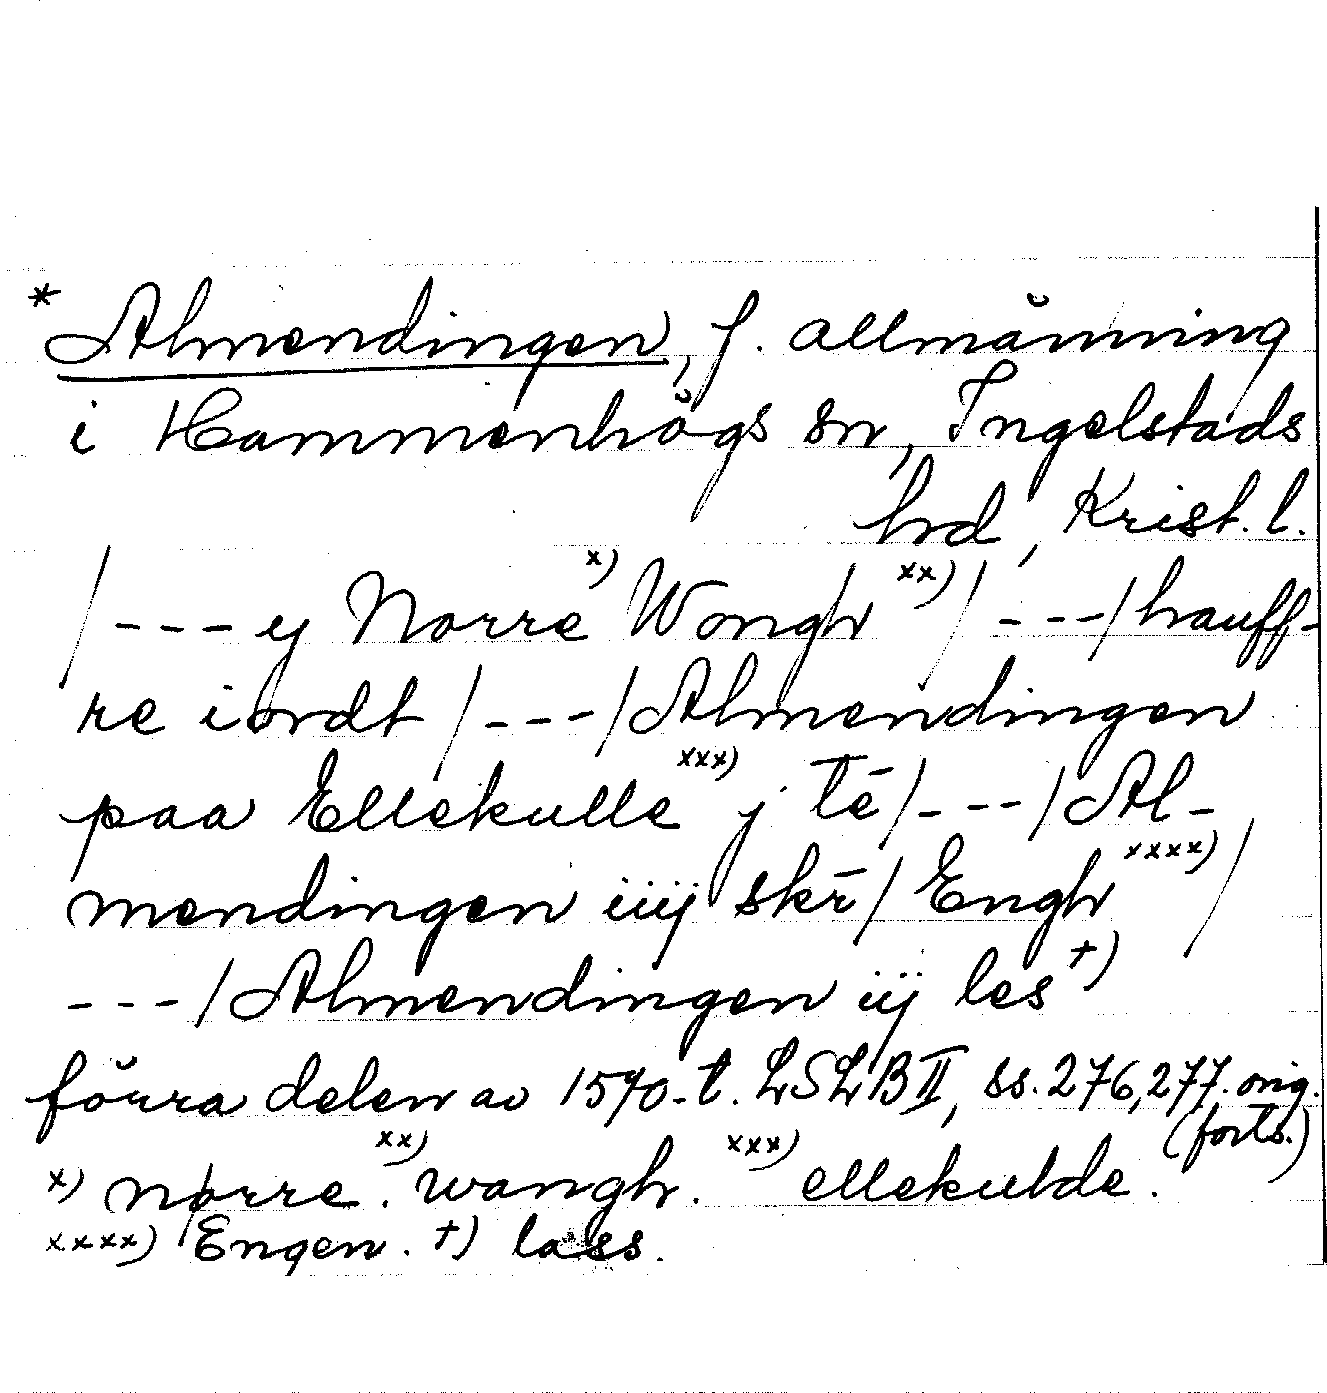 *Almendingen, f. allmänning
i Hammenhögs sn, Ingelstads
hrd, Krist. l.
/---y Norre x) Wongh xx)/---/hauff-
re iordt/---/Almendingen
paa Ellekulle xxx) j tē/---/Al-
mendingen iiij skr̄/Engh xxxx)/
---/Almendingen iij les †)
förra delen av 1570-t. LSLB II, ss. 276, 277. orig.
(forts.)
x) nørre. xx) wangh. xxx) ellekulde.
xxxx) Engen. †) lass.